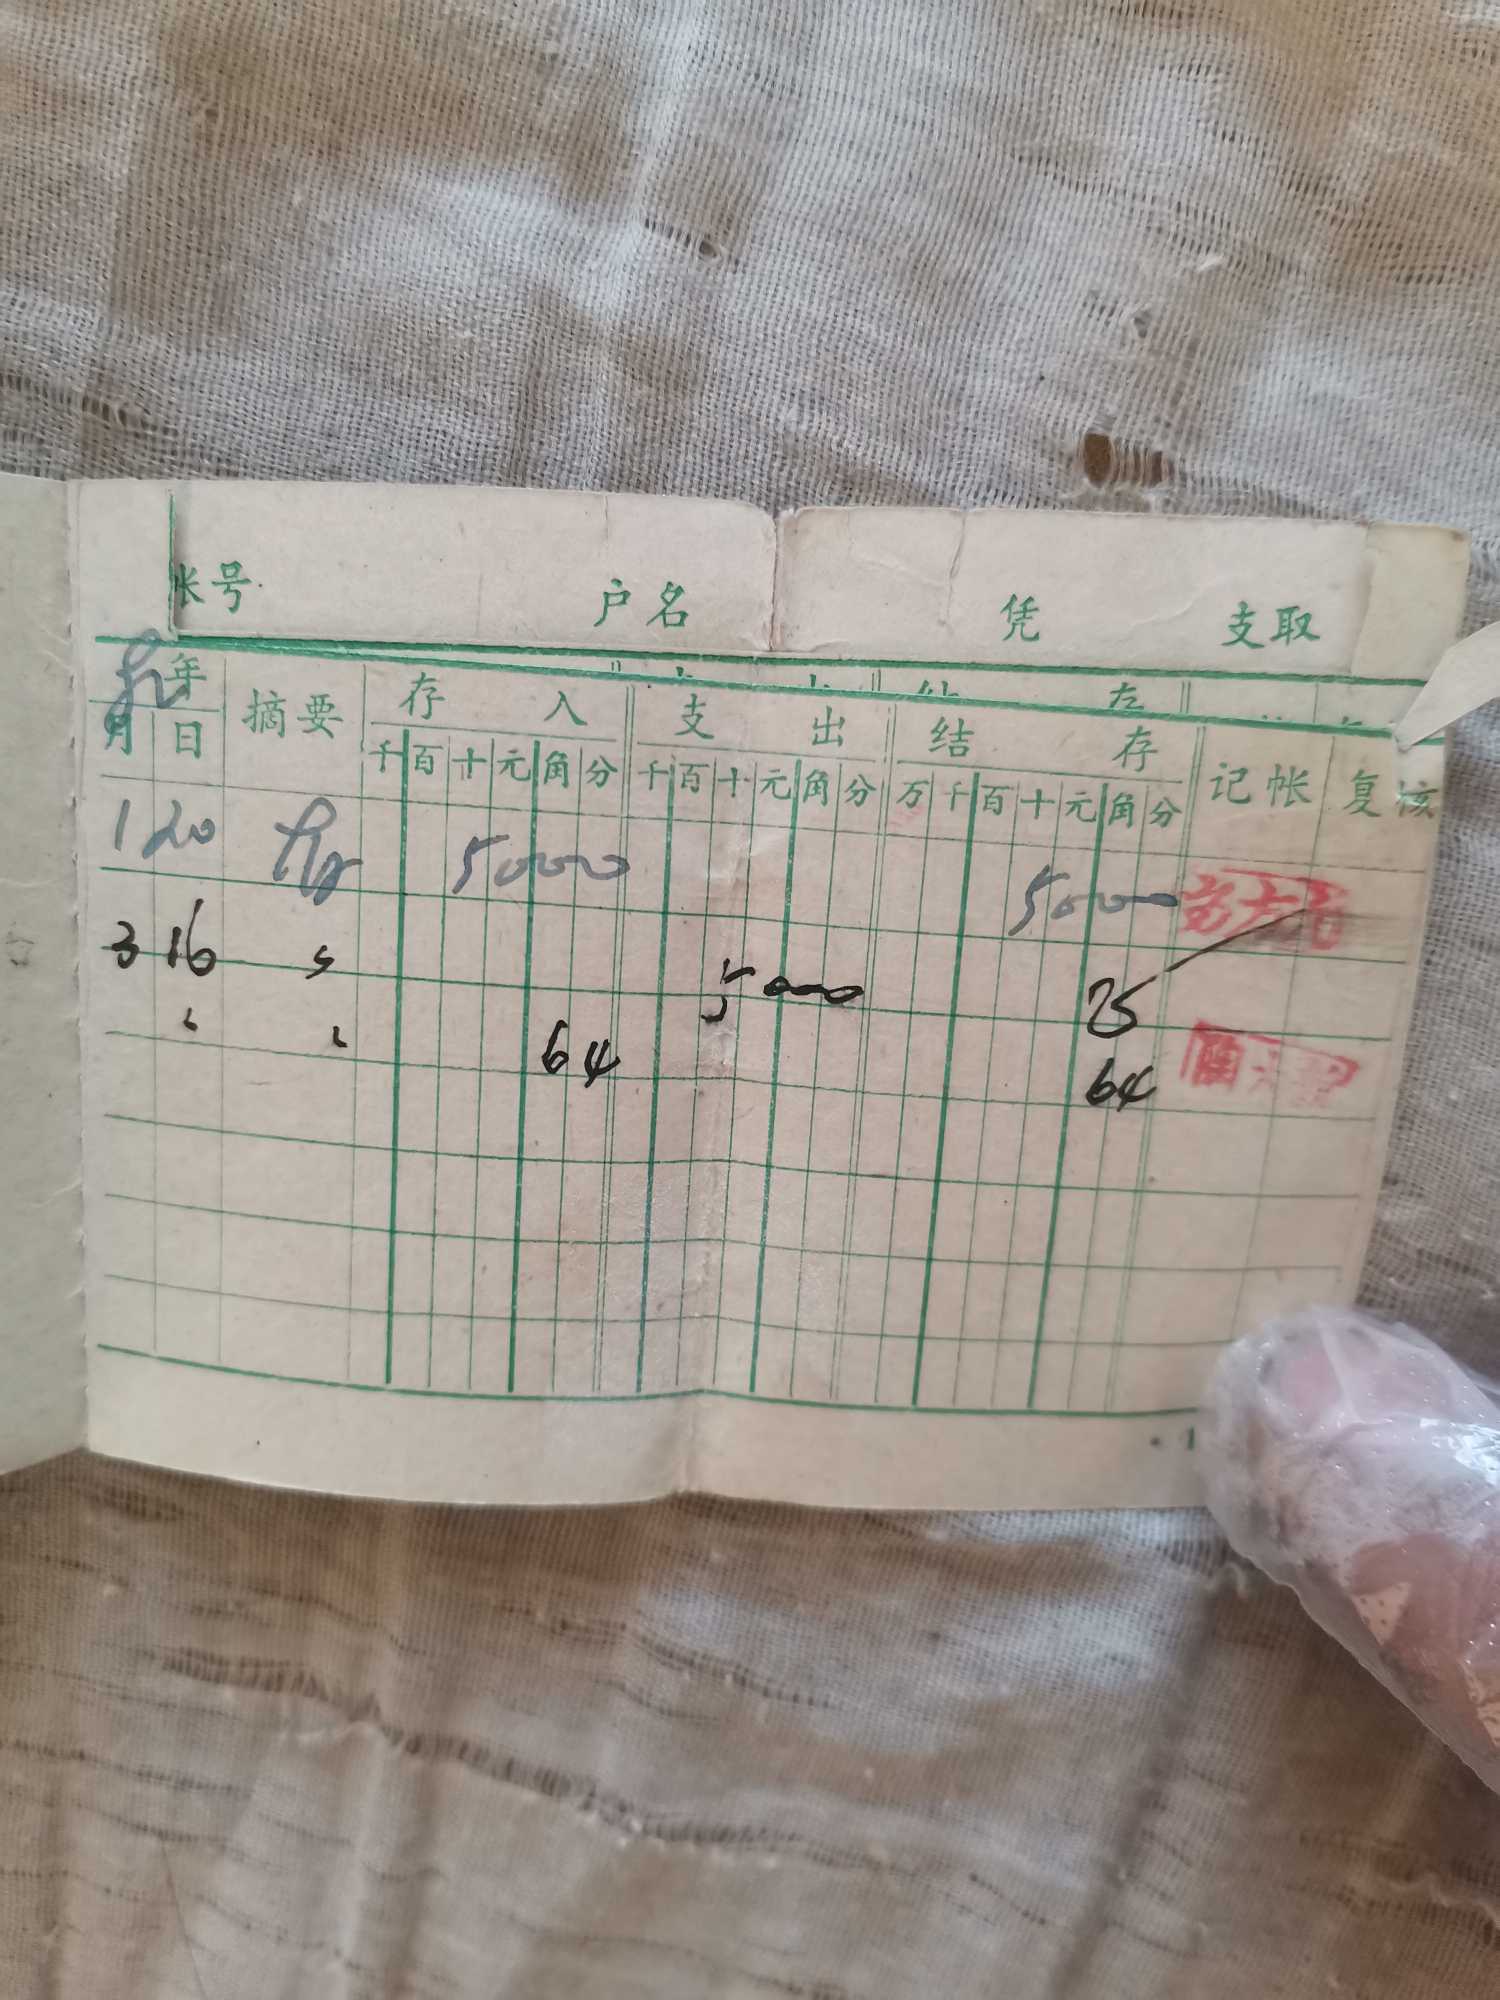 帐号 户名 凭 支取
年 摘要 存入 支出 结存 记帐 复核
月 日 千百十元角分 千百十元角分 万千百十元角分
1 20 5000 5000
3 16 5000
64 64